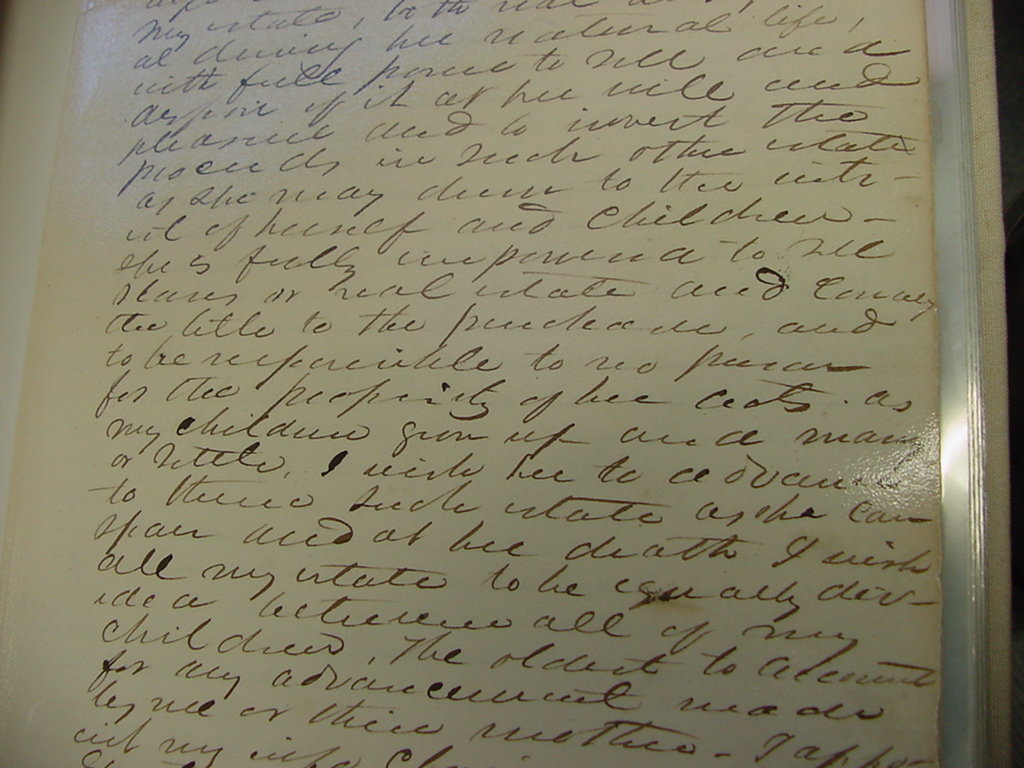 my estate, both real and
al during her natural life,
with full power to sell and
dispose of it at her will and
pleasure and to invest the
proceeds in such other estate
as she may deem to the inter-
est of herself and children-
she is fully impowered to sell
slaves or real estate and convey
the title to the purchaser, and
to be responsible to no person
for the propriety of her acts. as
my children grow up and marry
or settle, I wish her to advance
to them such estate as she can
spare and at her death I wish
all my estate to be equally div-
ided between all of my
children, The oldest to account
for any advancement made
by me or their mother- I appo
int my wife